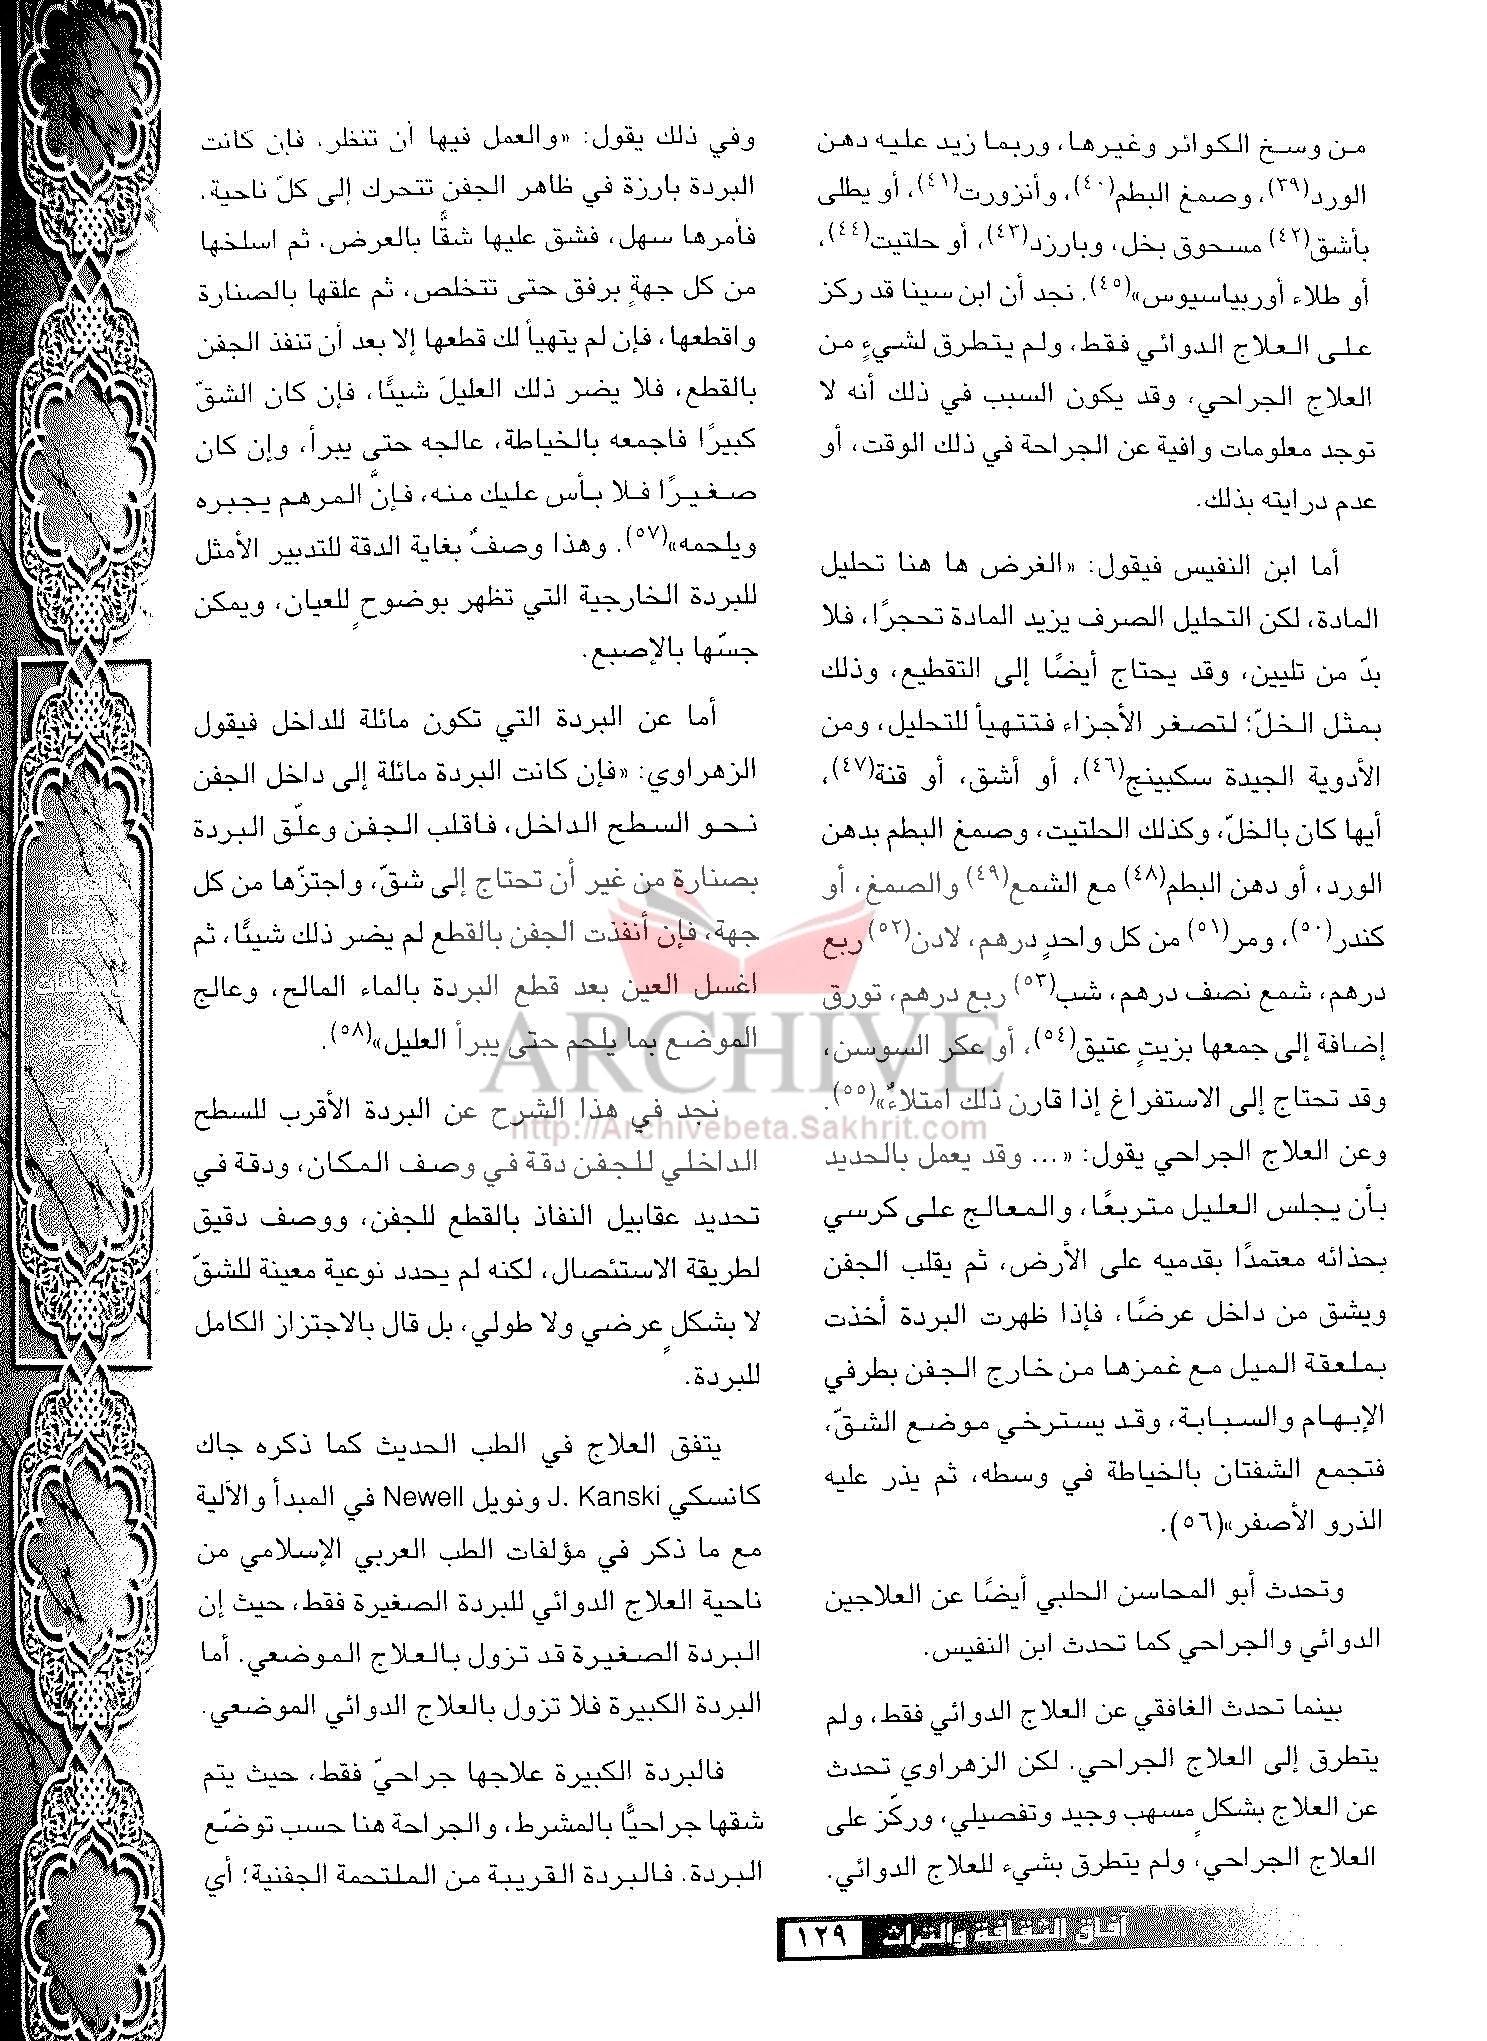 من وسخ الكوائر وغيرها، وربما زيد عليه دهن
الورد(٣٩)، وصمغ البطم(٤٠)، وأنزورت(٤١)، أو يطلى
بأشق(٤٢) مسحوق بخل، وبارزد(٤٣)، أو حلتيت(٤٤)،
أو طلاء أوربياسيوس»(٤٥). نجد أن ابن سينا قد ركز
على العلاج الدوائي فقط، ولم يتطرق لشيءٍ من
العلاج الجراحي، وقد يكون السبب في ذلك أنه لا
توجد معلومات وافية عن الجراحة في ذلك الوقت، أو
عدم درايته بذلك.
أما ابن النفيس فيقول: «الغرض ها هنا تحليل
المادة، لكن التحليل الصرف يزيد المادة تحجرًا، فلا
بدّ من تليين، وقد يحتاج أيضًا إلى التقطيع، وذلك
بمثل الخلّ؛ لتصغر الأجزاء فتتهيأ للتحليل، ومن
الأدوية الجيدة سكبينج(٤٦)، أو أشق، أو قنة(٤٧)،
أيها كان بالخلّ، وكذلك الحلتيت، وصمغ البطم بدهن
الورد، أو دهن البطم(٤٨) مع الشمع(٤٩) والصمغ، أو
كندر(٥٠)، ومر(٥١) من كل واحدٍ درهم، لادن(٥٢) ربع
درهم، شمع نصف درهم، شب(٥٣) ربع درهم، تورق
إضافة إلى جمعها بزيتٍ عتيق(٥٤)، أو عكر السوسن،
وقد تحتاج إلى الاستفراغ إذا قارن ذلك امتلاءٌ»(٥٥).
وعن العلاج الجراحي يقول: «... وقد يعمل بالحديد
بأن يجلس العليل متربعًا، والمعالج على كرسي
بحذائه معتمدًا بقدميه على الأرض، ثم يقلب الجفن
ويشق من داخل عرضًا، فإذا ظهرت البردة أخذت
بملعقة الميل مع غمزها من خارج الجفن بطرفي
الإبهام والسبابة، وقد يسترخي موضع الشقّ،
فتجمع الشفتان بالخياطة في وسطه، ثم يذر عليه
الذرو الأصفر»(٥٦).
وتحدث أبو المحاسن الحلبي أيضًا عن العلاجين
الدوائي والجراحي كما تحدث ابن النفيس.
بينما تحدث الغافقي عن العلاج الدوائي فقط، ولم
يتطرق إلى العلاج الجراحي. لكن الزهراوي تحدث
عن العلاج بشكلٍ مسهب وجيد وتفصيلي، وركّز على
العلاج الجراحي، ولم يتطرق بشيء للعلاج الدوائي.
وفي ذلك يقول: «والعمل فيها أن تنظر، فإن كانت
البردة بارزة في ظاهر الجفن تتحرك إلى كلّ ناحية،
فأمرها سهل، فشق عليها شقًّا بالعرض، ثم اسلخها
من كل جهةٍ برفق حتى تتخلص، ثم علقها بالصنارة
واقطعها، فإن لم يتهيأ لك قطعها إلا بعد أن تنفذ الجفن
بالقطع، فلا يضر ذلك العليلَ شيئًا، فإن كان الشقّ
كبيرًا فاجمعه بالخياطة، عالجه حتى يبرأ، وإن كان
صغيرًا فلا بأس عليك منه، فإنَّ المرهم يجبره
ويلحمه»(٥٧). وهذا وصفٌ بغاية الدقة للتدبير الأمثل
للبردة الخارجية التي تظهر بوضوحٍ للعيان، ويمكن
جسّها بالإصبع.
أما عن البردة التي تكون مائلة للداخل فيقول
الزهراوي: «فإن كانت البردة مائلة إلى داخل الجفن
نحو السطح الداخل، فاقلب الجفن وعلّق البردة
بصنارة من غير أن تحتاج إلى شقّ، واجتزّها من كل
جهة، فإن أنفذت الجفن بالقطع لم يضر ذلك شيئًا، ثم
اغسل العين بعد قطع البردة بالماء المالح، وعالج
الموضع بما يلحم حتى يبرأ العليل»(٥٨).
نجد في هذا الشرح عن البردة الأقرب للسطح
الداخلي للجفن دقة في وصف المكان، ودقة في
تحديد عقابيل النفاذ بالقطع للجفن، ووصف دقيق
لطريقة الاستئصال، لكنه لم يحدد نوعية معينة للشقّ
لا بشكلٍ عرضي ولا طولي، بل قال بالاجتزاز الكامل
للبردة.
يتفق العلاج في الطب الحديث كما ذكره جاك
كانسكي J. Kanski ونويل Newell في المبدأ والآلية
مع ما ذكر في مؤلفات الطب العربي الإسلامي من
ناحية العلاج الدوائي للبردة الصغيرة فقط، حيث إن
البردة الصغيرة قد تزول بالعلاج الموضعي. أما
البردة الكبيرة فلا تزول بالعلاج الدوائي الموضعي.
فالبردة الكبيرة علاجها جراحيّ فقط، حيث يتم
شقها جراحيًّا بالمشرط، والجراحة هنا حسب توضّع
البردة. فالبردة القريبة من الملتحمة الجفنية؛ أي
ARCHIVE
http://Archivebeta.Sakhrit.com
آفاق الثقافة والتراث ١٢٩